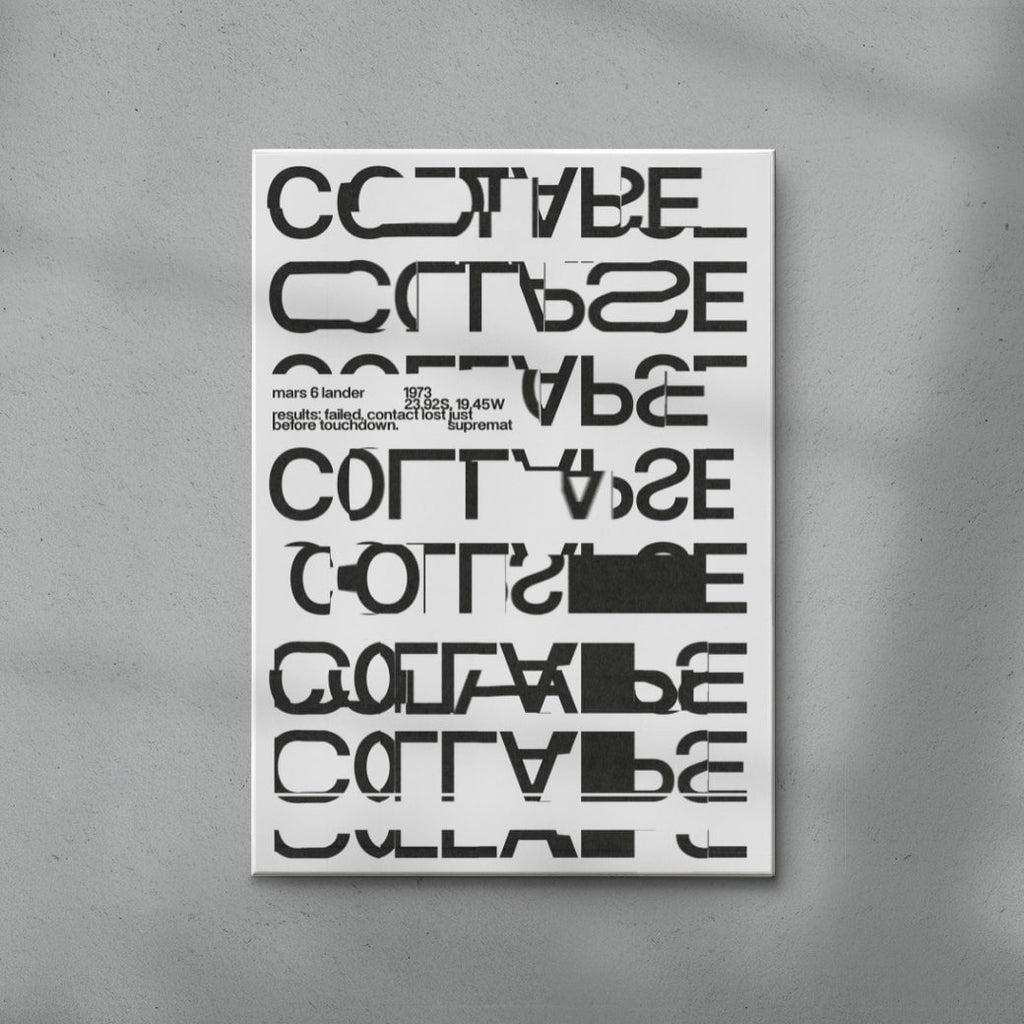 COLLAPSE
COLLAPSE
COLLAPSE
mars 6 lander 1973
23.92S, 19.45W
results: failed, contact lost just
before touchdown. supremat
COLLAPSE
COLLAPSE
COLLAPSE
COLLAPSE